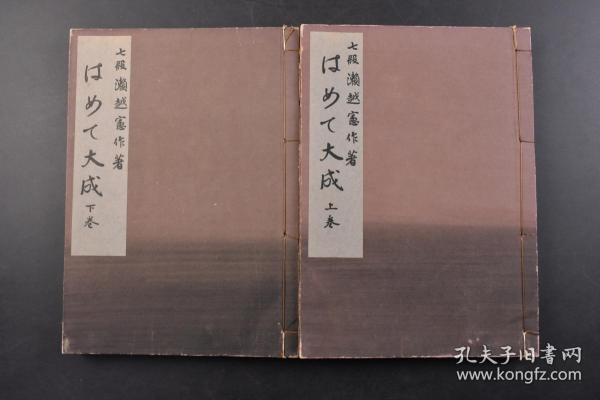 七段 瀬越憲作著
はめて大成 上巻
七段 瀬越憲作著
はめて大成 下巻
孔夫子旧书网
www.kongfz.com